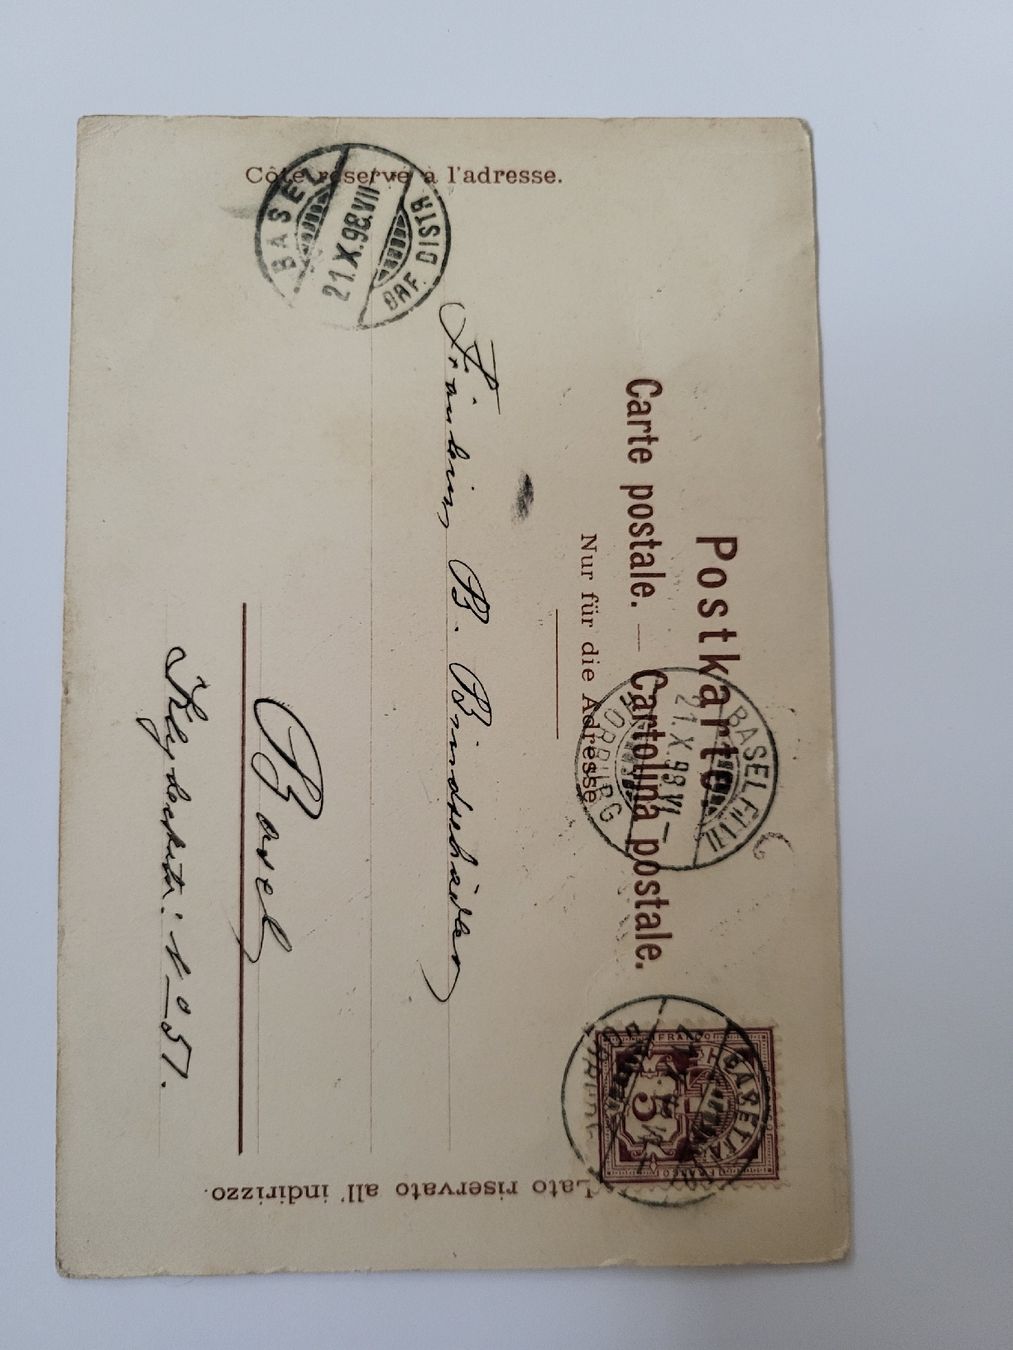 Postkarte.
Carte postale. — Cartolina postale.
Nur für die Adresse.
Côté réservé à l'adresse.
Lato riservato all' indirizzo.
BASEL
21.X.98.VII
BRF. DISTR.
BASEL FIL.
21.X.98.VI–
HORBURG
FRANCO
5
Fräulein B. Bindschädler
Basel
Klybeckstr: No 51.